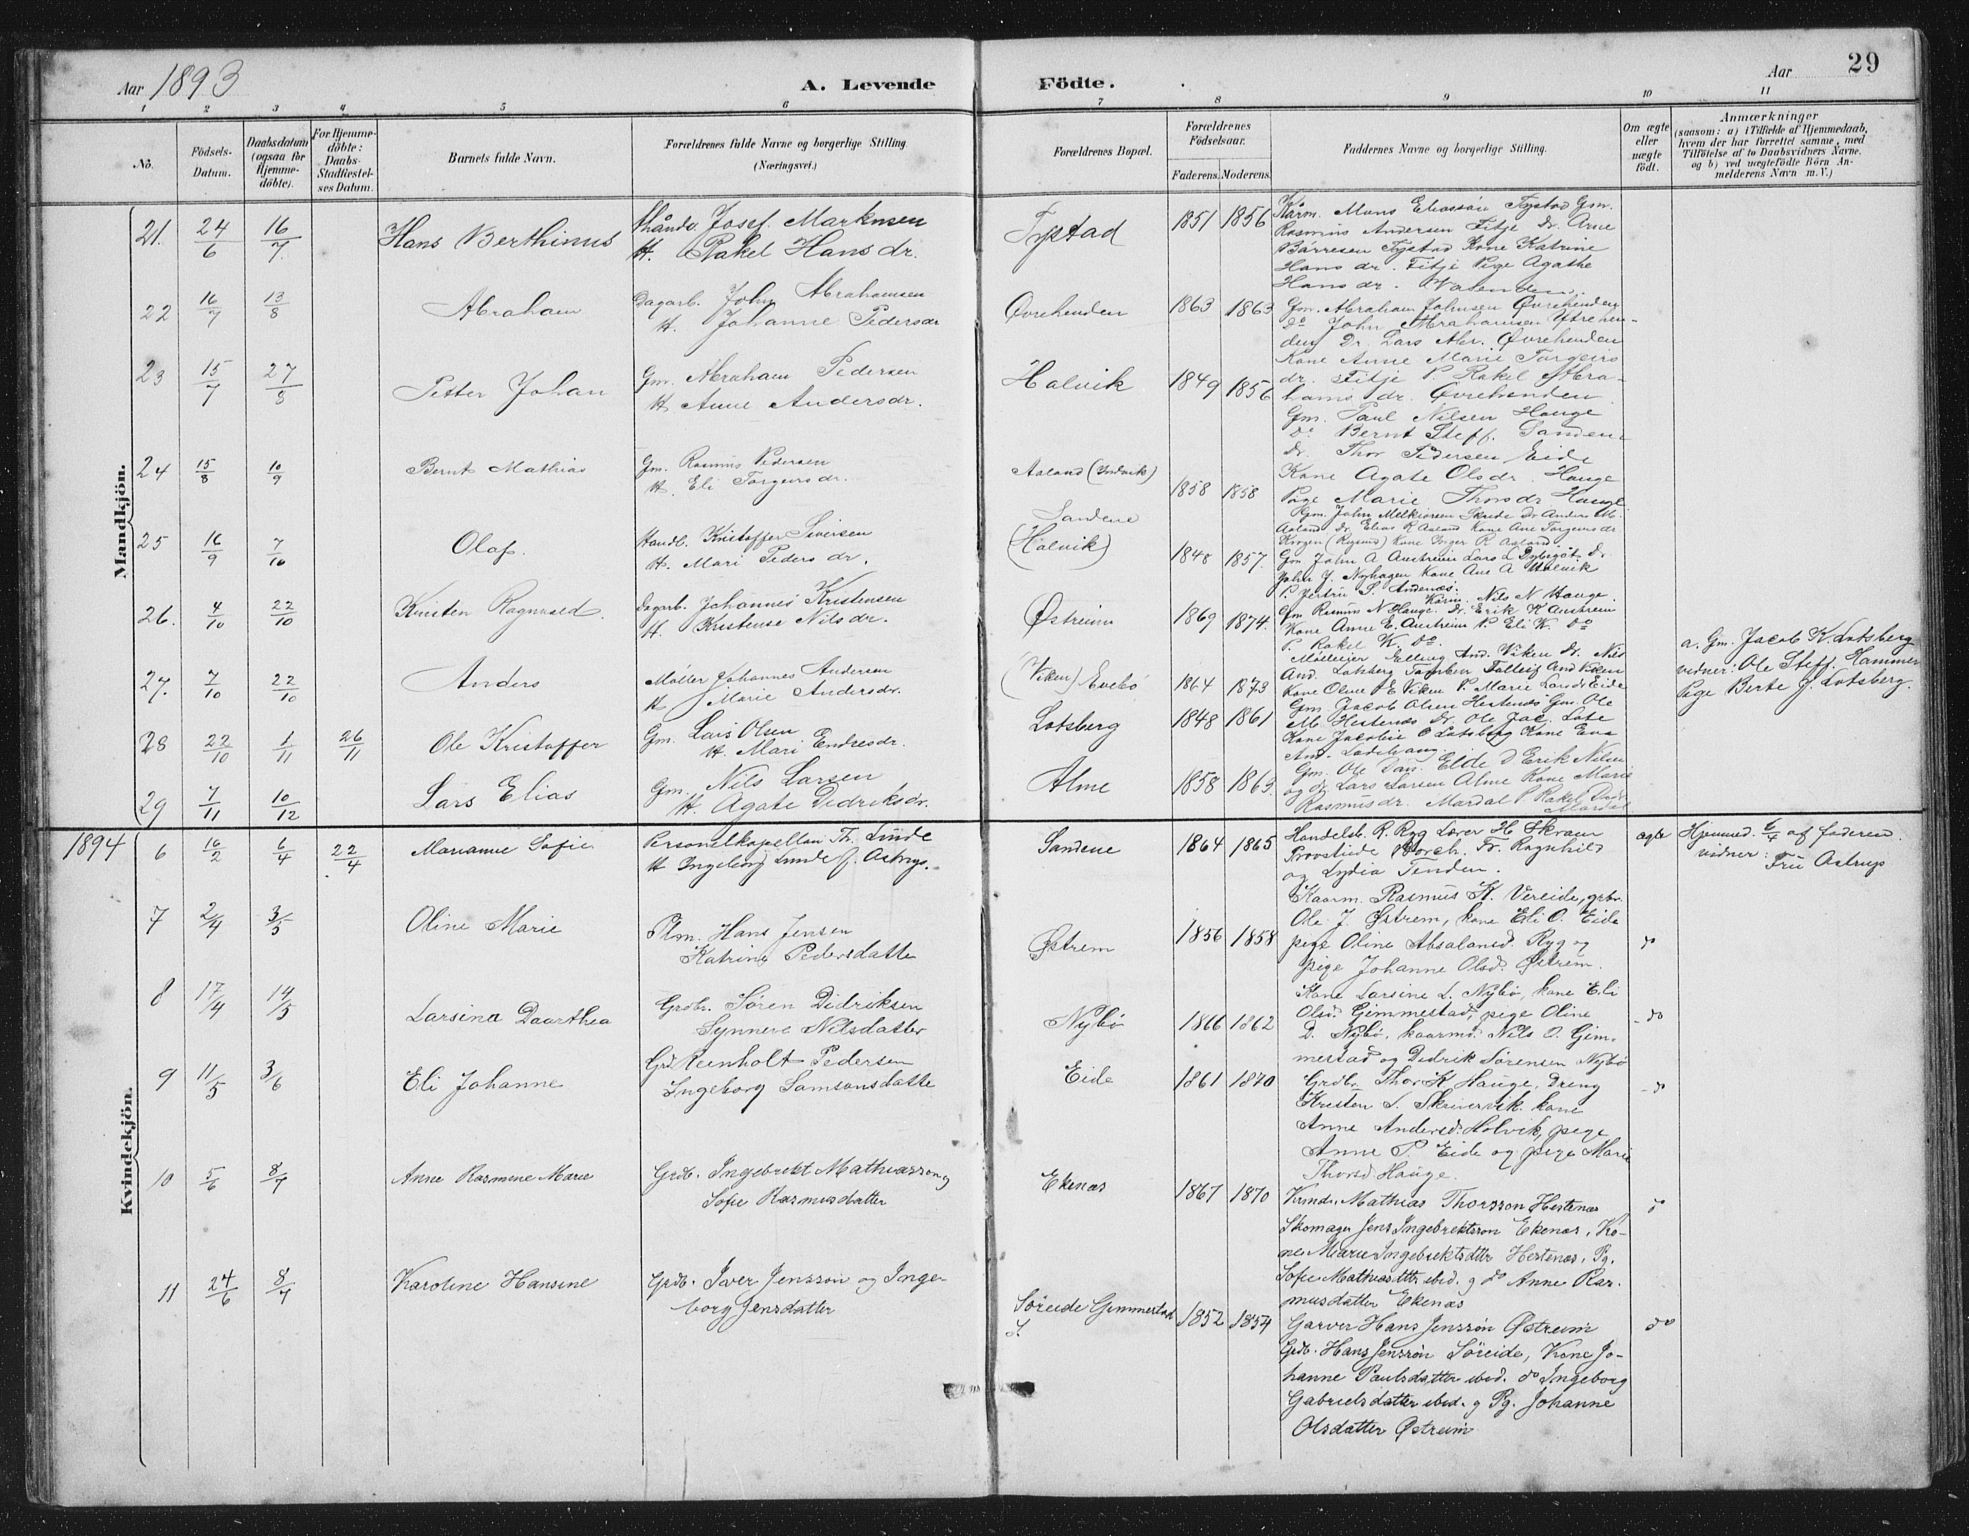 Aar 1893
A. Levende Födte.
Aar 29
1 2 3 4 5 6 7 8 9 10 11
No.
Födsels-Datum.
Daabsdatum (ogsaa for Hjemmedöbte).
For Hjemmedöbte: Daabs-Stadfæstelses Datum.
Barnets fulde Navn.
Forældrenes fulde Navne og borgerlige Stilling (Næringsvei.)
Forældrenes Bopæl.
Forældrenes Födselsaar.
Faderens. Moderens.
Faddernes Navne og borgerlige Stilling.
Om ægte eller uægte födt.
Anmærkninger
(saasom: a) i Tilfælde af Hjemmedaab,
hvem der har forrettet samme, med
Tilföielse af to Daabsvidners Navne.
og b) ved uægtefödte Börn An-
melderens Navn m. V.)
Mandkjön.
21. 24/6 16/7 Hans Berthinus
Josef Markusen
H. Rakel Hansdr.
Tystad 1851 1856
Kårm. Mons Eliassøn Tystad Gm.
Rasmus Andersen Fitje Dr. Arne
Børresen Tystad Kone Katrine
Hansdr. Fitje Pige Agathe
Hansdr.
22 16/7 13/8 Abraham
Dagarb. John Abrahamsen
H. Johanne Pedersdr
Øvrehenden 1863 1863
Gm. Abraham Johnsen Øvrehenden
do John Abrahamsen Ytrehen-
den Dr. Lars Abr. Øvrehenden
Kone Anne Marie Torgeirs
dr. Fitje P. Rakel Abra-
hams dr. Øvrehenden
23 15/7 27/8 Petter Johan
Gm. Abraham Pedersen
H Anne Andersdr.
Holvik 1849 1856
Gm. Paul Nilsen Hauge
do Bernt Steff. Sandene
Dr. Thor Pedersen Eide
Kone Agate Olsdr. Hauge
Pige Marie Thorsdr Hauge
24 15/8 10/9 Bernt Mathias
Gm. Rasmus Pedersen
H. Eli Torgersdr.
Aaland (Indvik) 1858 1858
Gm. John Melkiorsen Skeide Dr Anders M.
Aaland Dr. Elias R Aaland Kone Ane Torgersdr
Krogen (Rysund) Kone Inger R Aaland.
25 16/9 7/10 Olaf.
Handl. Kristoffer Siversen
H. Mari Peders dr.
Sandene
(Holvik) 1848 1857.
Gm John A Austreim Lars L Dybegot. Dr.
John J. Nyhagen Kone Ane A Holvik
P. Jertru S. Andenæs.
26. 4/10 22/10 Kristen Ragnvald
Dagarb. Johannes Kristensen
H. Kristense Nilsdr.
Østreim 1869 1874.
Kårm. Nils N Hauge.
Gm Rasmus N Hauge. Dr. Erik K Austreim
Kone Anne E. Austreim P. Eli K. do
P. Rakel K. do
27. 7/10 22/10 Anders
Møller Johannes Andersen
H Marie Andersdr.
(Viken) Evebø 1864 1873
Mølleeier Elling And. Viken Dr. Nils
And. Lotsberg Tolleif And Viken
Kone Oline P E Viken P. Marie Larsdr Eide
28 22/10 1/11 26/11 Ole Kristoffer
Gm. Lars Olsen
H. Mari Endresdr.
Lotsberg 1848 1861
Gm. Jacob Olsen Hestenæs Gm. Ole
M. Hestenæs Dr. Ole Jac. Lote
Kone Jacobie O Lotsberg Kone Eva
And.
a. Gm. Jacob K. Lotsberg
vidner: Ole Steff. Hammer
Pige Berte J. Lotsberg.
29 7/11 10/12 Lars Elias
Gm. Nils Larsen
H. Agate Didriksdr.
Alme 1858 1863.
Gm. Ole Dan. Eide D Erik Nilsen
og dr. Lars Larsen Alme Kone Marie
Rasmusdr. Mardal P Rakel Mardal
1894
Kvindekjön.
6 16/2 6/4 22/4 Marianne Sofie
Personelkapellan Th. Linde
H Ingeborg Linde f. Astrup.
Sandene 1864 1865
Handelsb. R. Ryg Lærer H Skram
Provstinde Borch. Fr. Ragnhild
og Lydia Tenden.
ægte
Hjemmed. 6/4 af faderen.
vidner: Fru Astrup
7 2/4 3/5 Oline Marie
Plm. Hans Jensen
Katrine Pedersdatte
Østrem 1856 1858
Kaarm. Rasmus K. Vereide, grbr.
Ole J Østrem, kone Eli O. Eide
pige Oline Absalonsd. Ryg og
pige Johanne Olsd. Østrem.
do
8 17/4 14/5 Larsina Daarthea
Grdbr. Søren Didriksen
Synneve Nilsdatter
Nybø 1866 1862
Kone Larsine L. Nybø, kone Eli
Olsd. Gimmestad, pige Oline
D. Nybø, kaarmd. Nils O. Gim-
mestad og Didrik Sørensen Nybø
do
9 11/5 3/6 Eli Johanne
Grd Reenholt Pedersen
Ingeborg Samsonsdatte
Eide 1861 1870
Grdbr. Thor K Hauge, Dreng
Kristen S. Skrivervik. kone
Anne Andersd. Holvik, pige
Anne P. Eide og pige Marie
Thorsd Hauge.
do
10 5/6 8/7 Anne Rasmine Marie
Grdb. Ingebrekt Mathiasson og
Sofie Rasmusdatter
Ekenæs 1867 1870
Krmd. Mathias Thorsson Hestenæs
Skomager Jens Ingebrektsøn Ekenæs, Ko-
ne Marie Ingebrektsdttr Hestenæs, Pg.
Sofie Mathiasdttr ibid. g do Anne Ras-
musdatter Ekenæs
do
11 24/6 8/7 Karoline Hansine
Grdb. Iver Jenssøn og Inge-
borg Jensdatter
Søreide Gimmestad
S. 1852 1854
Garver Hans Jenssøn Østreim
Grdb. Hans Jenssøn Søreide, Kone Jo-
hanne Paulsdatter ibid. do Ingeborg
Gabrielsdatter ibid. g Pg. Johanne
Olsdatter Østreim
do